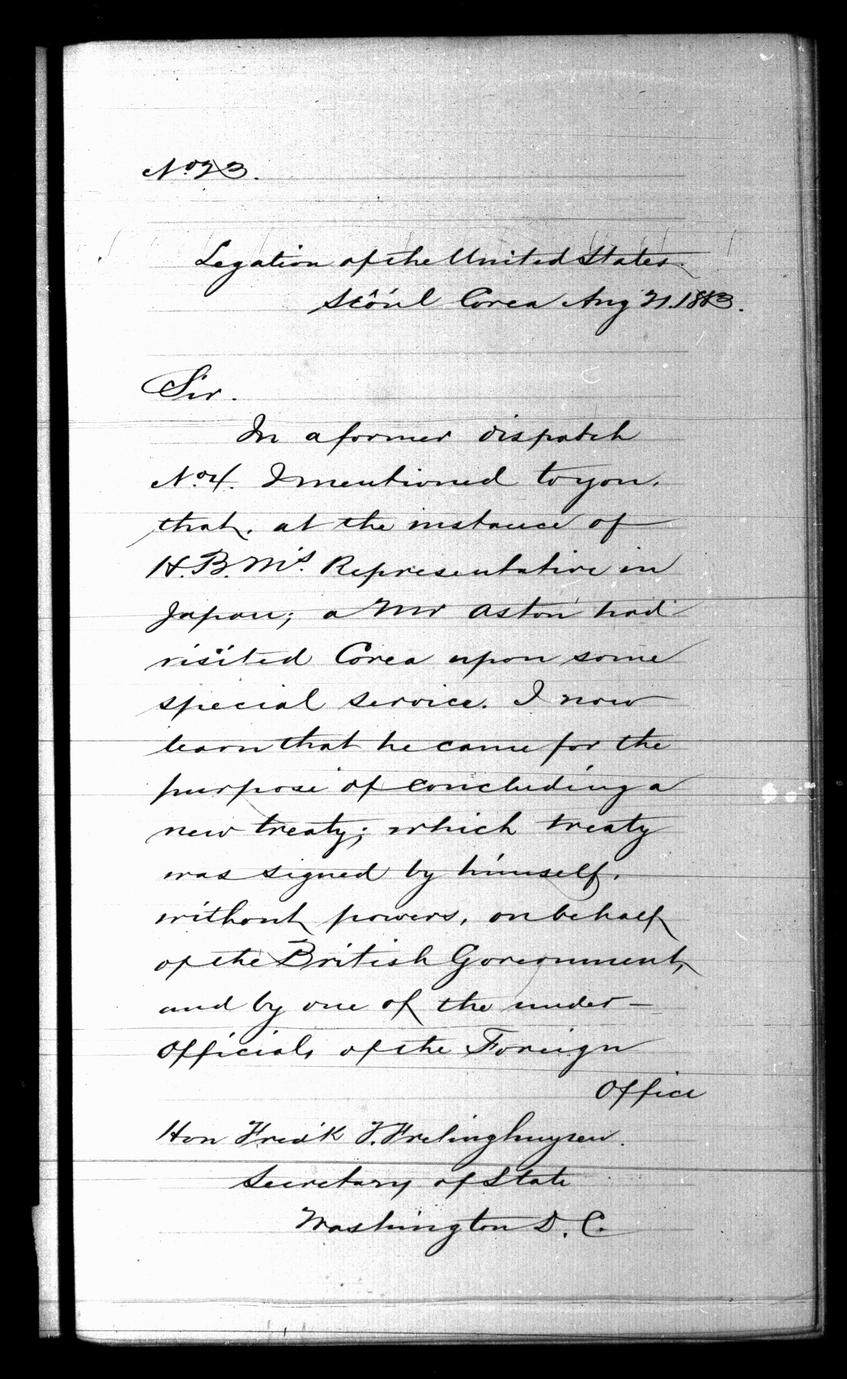 No 23.
Legation of the United States.
Sëoul Corea Aug 21. 1883.
Sir.
In a former dispatch
No 4. I mentioned to you,
that, at the instance of
H. B. M's. Representative in
Japan; a Mr Aston had
visited Corea upon some
special service. I now
learn that he came for the
purpose of concluding a
new treaty; which treaty
was signed by himself,
without powers, on behalf
of the British Government,
and by one of the under-
officials of the Foreign
Office
Hon Fred'k T. Frelinghuysen.
Secretary of State
Washington D. C.